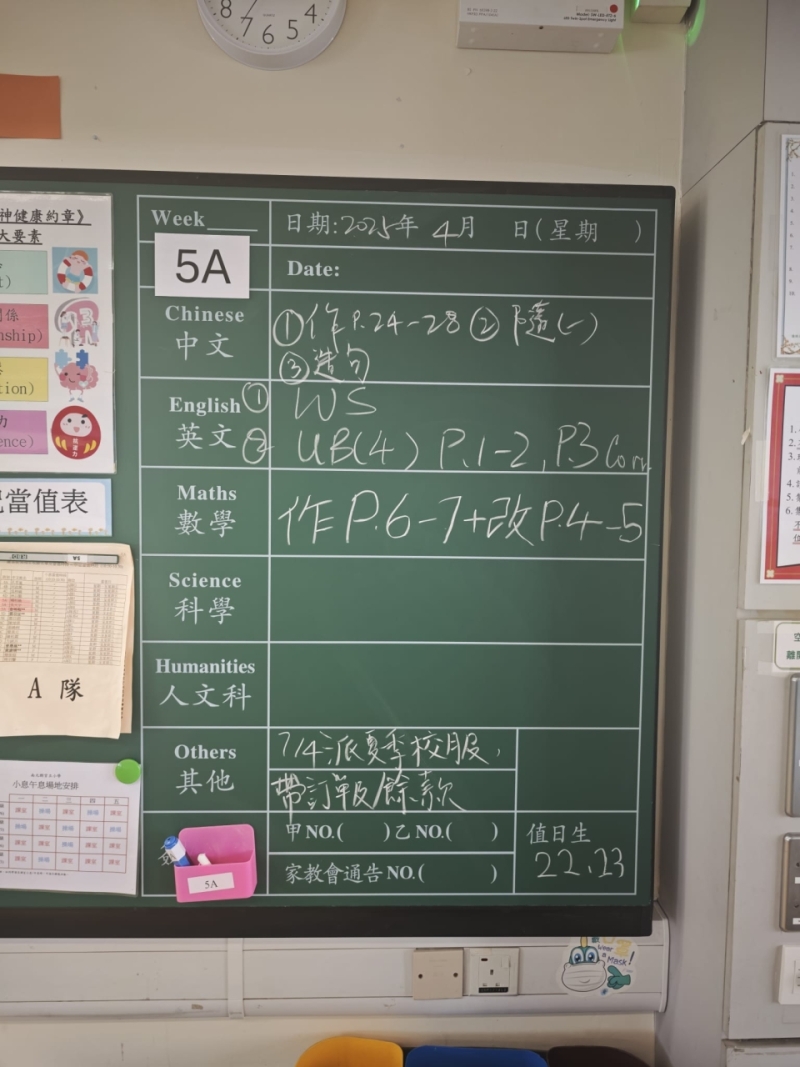 8 7 6 5 4
神健康約章》
大要素
Week____
日期:2025年 4月 日(星期 )
5A
Date:
Chinese
中文
①作P.24-28 ②隨(一)
③造句
English
英文
① WS
② UB(4) P.1-2, P.3 Corr.
Maths
數學
作P.6-7+改P.4-5
Science
科學
Humanities
人文科
Others
其他
7/4派夏季校服,
帶訂單及餘款
甲NO.( )乙NO.( )
家教會通告NO.( )
值日生
22,23
5A
當值表
A 隊
小息午息場地安排
一 二 三 四 五
Wear a Mask!